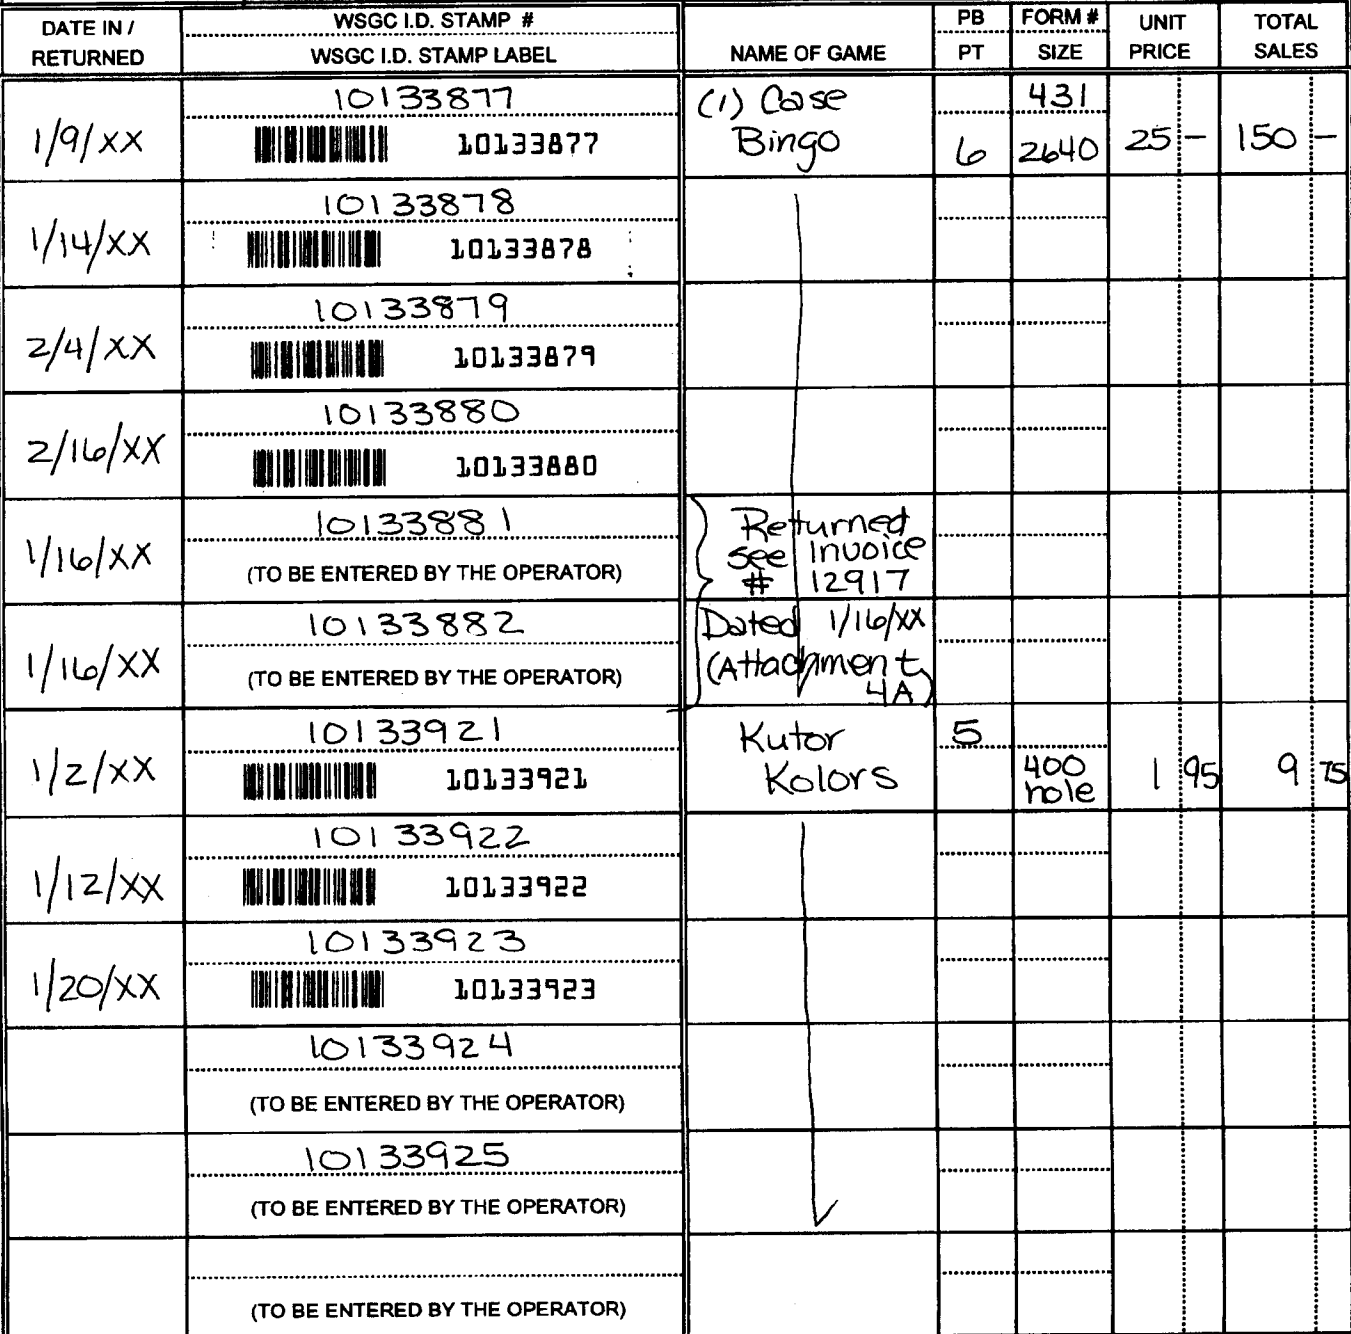 DATE IN / RETURNED
WSGC I.D. STAMP #
WSGC I.D. STAMP LABEL
NAME OF GAME
PB
PT
FORM #
SIZE
UNIT PRICE
TOTAL SALES
1/9/XX
10133877
10133877
(1) Case
Bingo
6
431
2640
25 -
150 -
1/14/XX
10133878
10133878
2/4/XX
10133879
10133879
2/16/XX
10133880
10133880
1/16/XX
10133881
(TO BE ENTERED BY THE OPERATOR)
Returned
see Invoice
# 12917
1/16/XX
10133882
(TO BE ENTERED BY THE OPERATOR)
Dated 1/16/XX
(Attachment
4A)
1/2/XX
10133921
10133921
Kutor
Kolors
5
400
hole
1 95
9 75
1/12/XX
10133922
10133922
1/20/XX
10133923
10133923
10133924
(TO BE ENTERED BY THE OPERATOR)
10133925
(TO BE ENTERED BY THE OPERATOR)
(TO BE ENTERED BY THE OPERATOR)